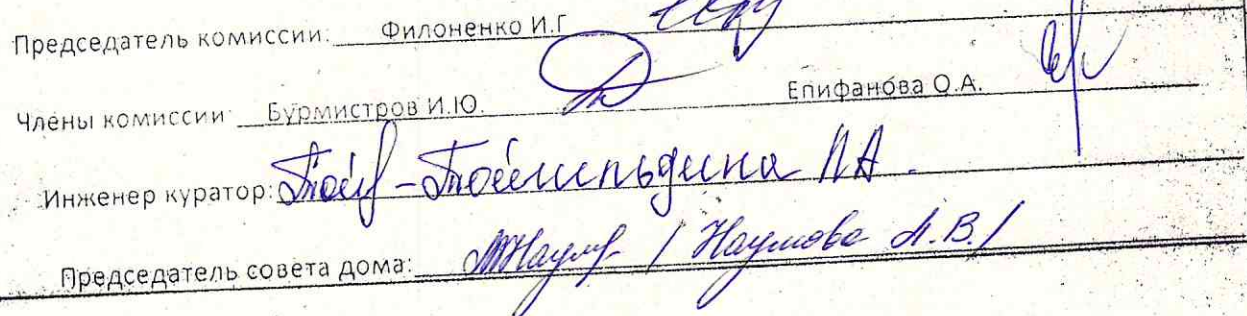 Председатель комиссии: Филоненко И.Г
Члены комиссии: Бурмистров И.Ю. Епифанова О.А.
Инженер куратор: Той - Тойшильдина Л А.
Председатель совета дома: / Наумова Л.В./